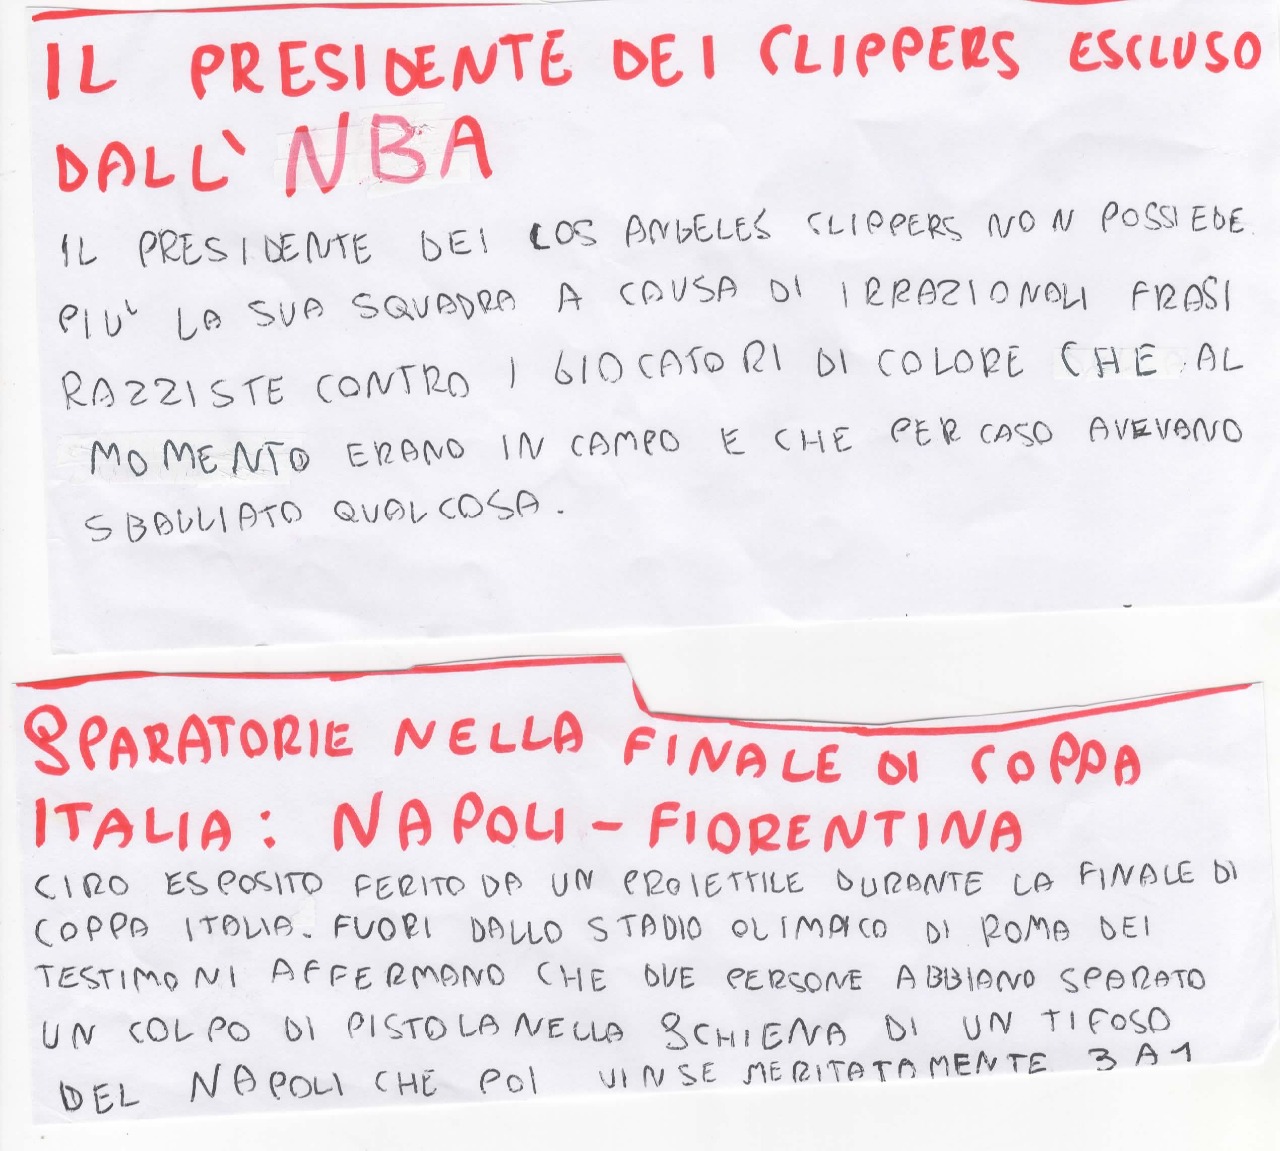 IL PRESIDENTE DEI CLIPPERS ESCLUSO
DALL' NBA
IL PRESIDENTE DEI LOS ANGELES CLIPPERS NON POSSIEDE
PIU' LA SUA SQUADRA A CAUSA DI IRRAZIONALI FRASI
RAZZISTE CONTRO I GIOCATORI DI COLORE CHE AL
MOMENTO ERANO IN CAMPO E CHE PER CASO AVEVANO
SBALLIATO QUALCOSA.
SPARATORIE NELLA FINALE DI COPPA
ITALIA: NAPOLI - FIORENTINA
CIRO ESPOSITO FERITO DA UN PROIETTILE DURANTE LA FINALE DI
COPPA ITALIA. FUORI DALLO STADIO OLIMPICO DI ROMA DEI
TESTIMONI AFFERMANO CHE DUE PERSONE ABBIANO SPARATO
UN COLPO DI PISTOLA NELLA SCHIENA DI UN TIFOSO
DEL NAPOLI CHE POI VINSE MERITATAMENTE 3 A 1